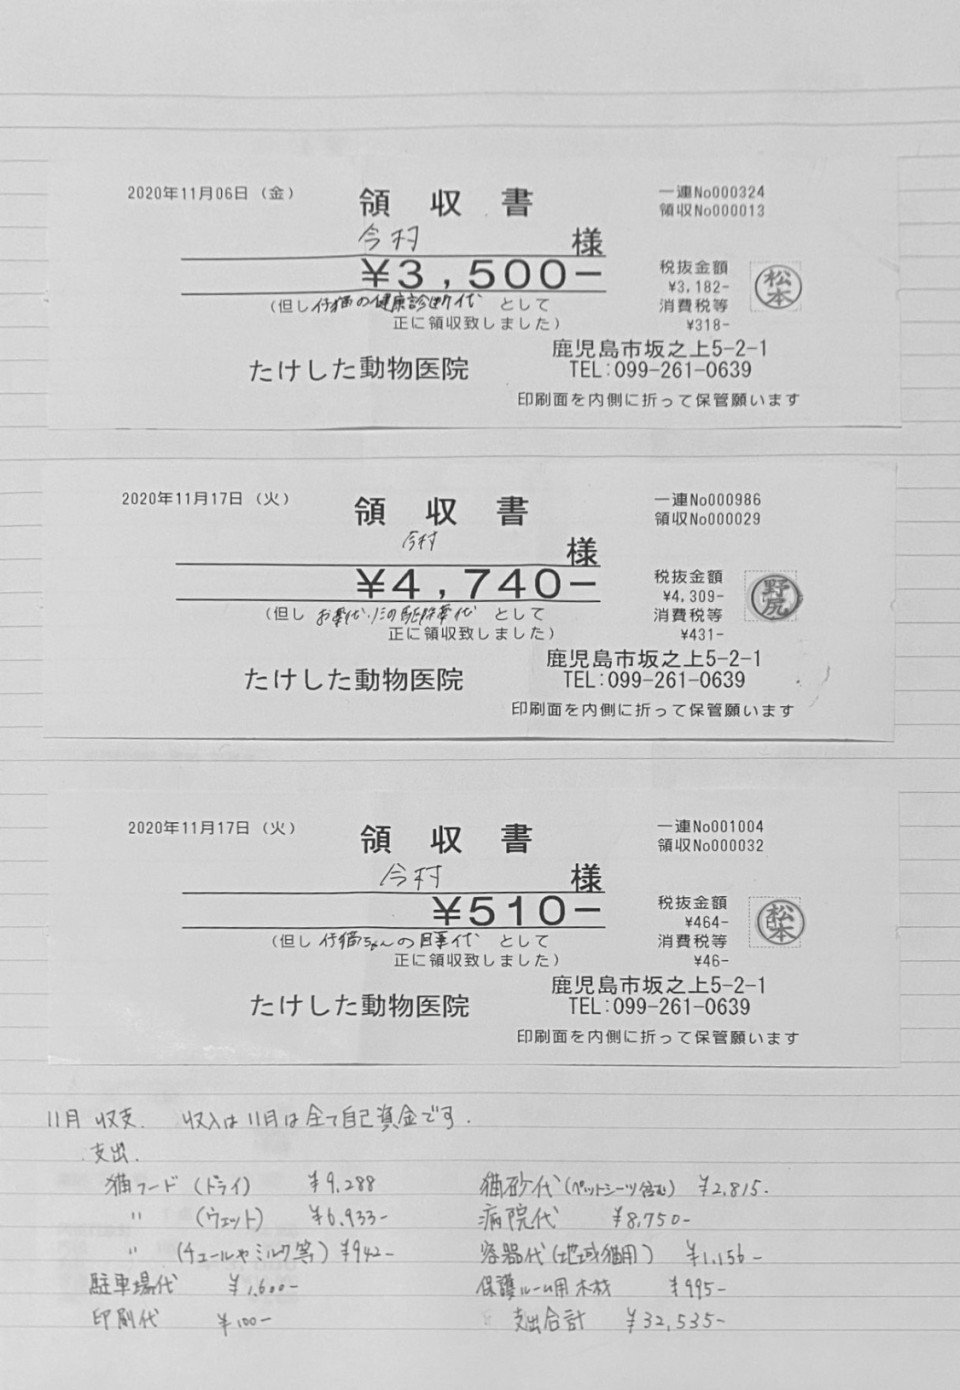 2020年11月06日（金）
領収書
一連No000324
領収No000013
今村 様
¥3,500-
税抜金額
¥3,182-
消費税等
¥318-
松本
（但し 仔猫の健康診断代 として
正に領収致しました）
たけした動物医院
鹿児島市坂之上5-2-1
TEL:099-261-0639
印刷面を内側に折って保管願います
2020年11月17日（火）
領収書
一連No000986
領収No000029
今村 様
¥4,740-
税抜金額
¥4,309-
消費税等
¥431-
野尻
（但し お薬代、ﾉﾐの駆除薬代 として
正に領収致しました）
たけした動物医院
鹿児島市坂之上5-2-1
TEL:099-261-0639
印刷面を内側に折って保管願います
2020年11月17日（火）
領収書
一連No001004
領収No000032
今村 様
¥510-
税抜金額
¥464-
消費税等
¥46-
松本
（但し 仔猫ちゃんの目薬代 として
正に領収致しました）
たけした動物医院
鹿児島市坂之上5-2-1
TEL:099-261-0639
印刷面を内側に折って保管願います
11月 収支. 収入は11月は全て自己資金です.
支出.
猫フード（ドライ） ¥9.288
〃（ウェット） ¥6.933-
〃（チュールやミルク等）¥942-
駐車場代 ¥1.600-
印刷代 ¥100-
猫砂代（ペットシーツ含む） ¥2,815.
病院代 ¥8,750-
容器代（地域猫用） ¥1.156-
保護ルーム用 木材 ¥995-
支出合計 ¥32,535-